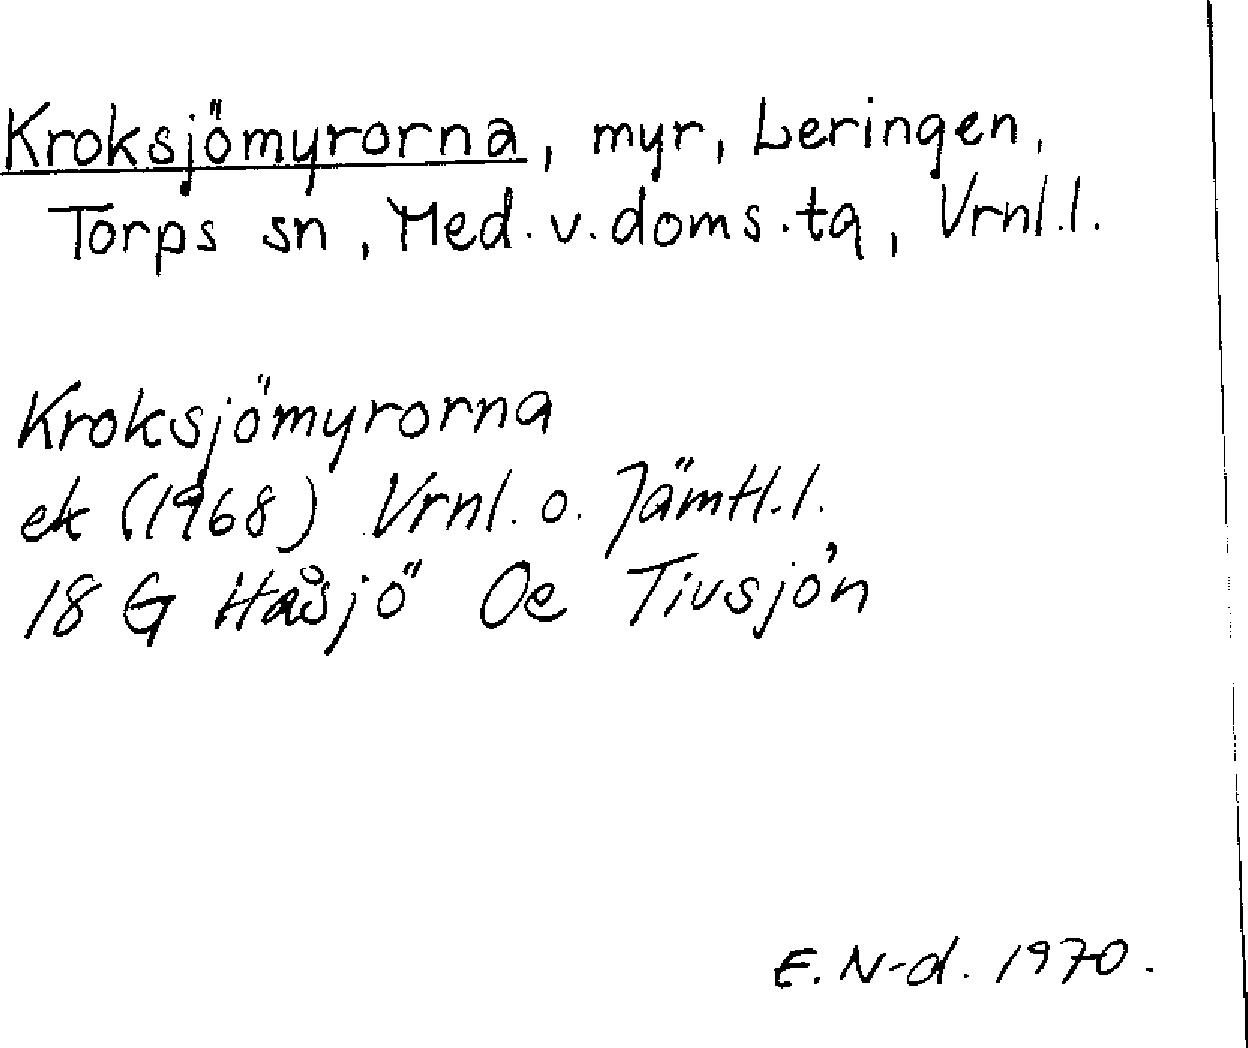 Kroksjömyrorna, myr, Leringen,
Torps sn, Med. v. doms. tg, Vrnl. l.
Kroksjömyrorna
ek (1968) Vrnl. o. Jämtl. l.
18 G Håsjö Oe Tivsjön
E. N-d. 1970.